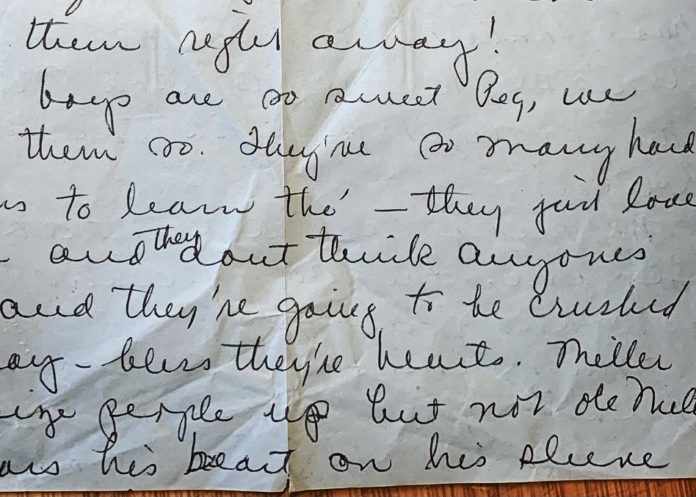 them right away!
boys are so sweet Peg, we
them so. They've so many hard
ns to learn tho' — they just love
and they dont think anyones
and they're going to be crushed
ay - bless they're hearts. Miller
ize people up but not ole Mill
ars his heart on his sleeve